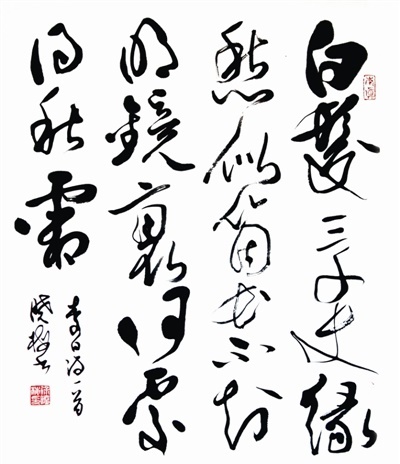 白髮三千丈緣
愁似箇長不知
明鏡裏何處
得秋霜
李白诗一首
晓 书